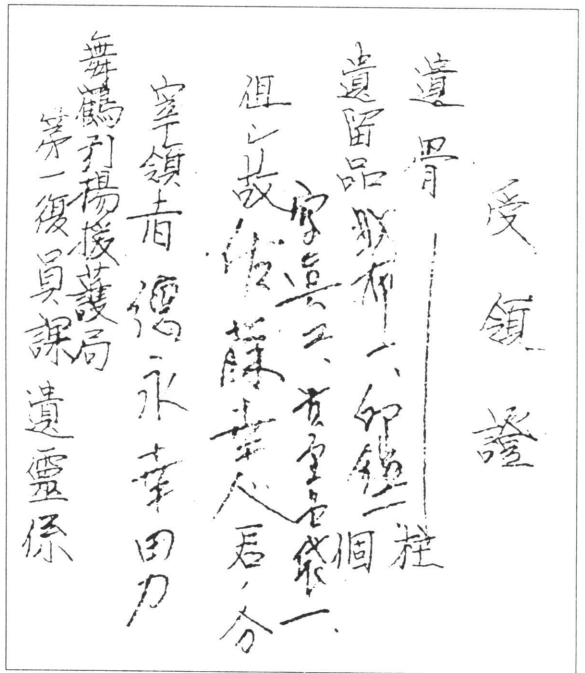 受領證
遺骨 ― 柱
遺留品 財布一、印鑑一個
写真二、貴重品袋一、
但シ故佐藤幸人君ノ分
宰領者 德永幸男
舞鶴引揚援護局
第一復員課遺霊係